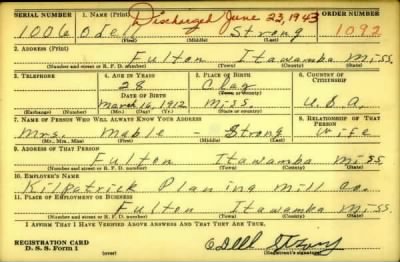 SERIAL NUMBER 1. NAME (Print) Discharged June 23, 1943 ORDER NUMBER
1006 Odell Strong 1092
(First) (Middle) (Last)
2. ADDRESS (Print)
Fulton Itawamba Miss.
(Number and street or R. F. D. number) (Town) (County) (State)
3. TELEPHONE 4. AGE IN YEARS 5. PLACE OF BIRTH 6. COUNTRY OF CITIZENSHIP
28 Clay
DATE OF BIRTH (Town or county)
March 16, 1912 Miss. U.S.A.
(Exchange) (Number) (Mo.) (Day) (Yr.) (State or country)
7. NAME OF PERSON WHO WILL ALWAYS KNOW YOUR ADDRESS 8. RELATIONSHIP OF THAT PERSON
Mrs. Mable - Strong Wife
(Mr., Mrs., Miss) (First) (Middle) (Last)
9. ADDRESS OF THAT PERSON
Fulton Itawamba Miss
(Number and street or R. F. D. number) (Town) (County) (State)
10. EMPLOYER'S NAME
Kilpatrick Planing Mill Co.
11. PLACE OF EMPLOYMENT OR BUSINESS
Fulton Itawamba Miss.
(Number and street or R. F. D. number) (Town) (County) (State)
I AFFIRM THAT I HAVE VERIFIED ABOVE ANSWERS AND THAT THEY ARE TRUE.
REGISTRATION CARD
D. S. S. Form 1 (over) Odell Strong
(Registrant's signature)